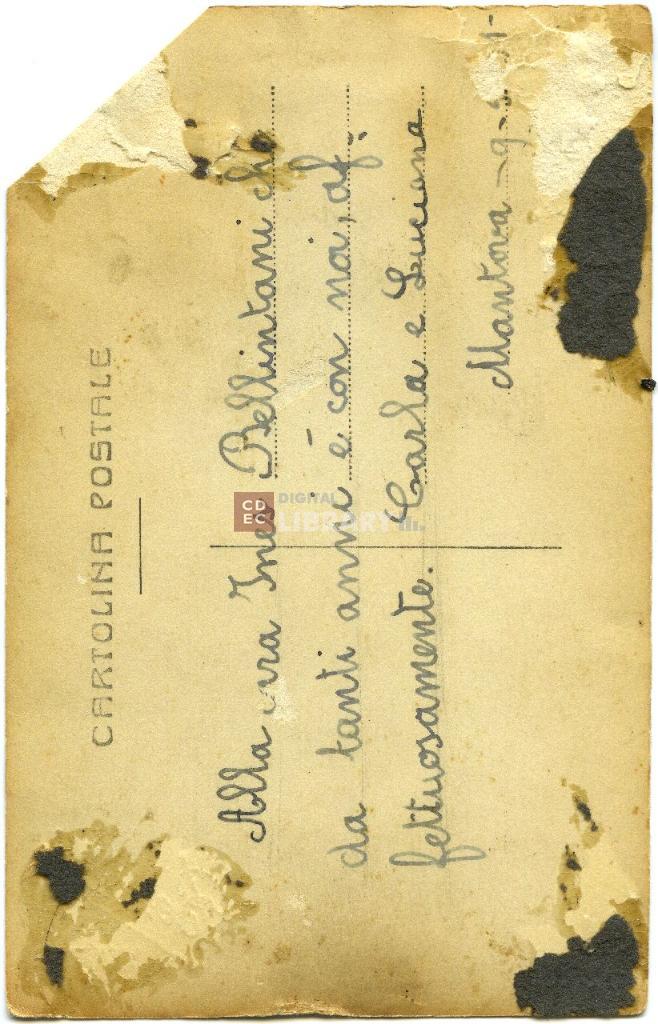 CARTOLINA POSTALE
Alla cara Ines Bellintani che
da tanti anni è con noi, af.
fettuosamente. Carla e Luciana
Mantova - 9 -
CDEC DIGITAL LIBRARY